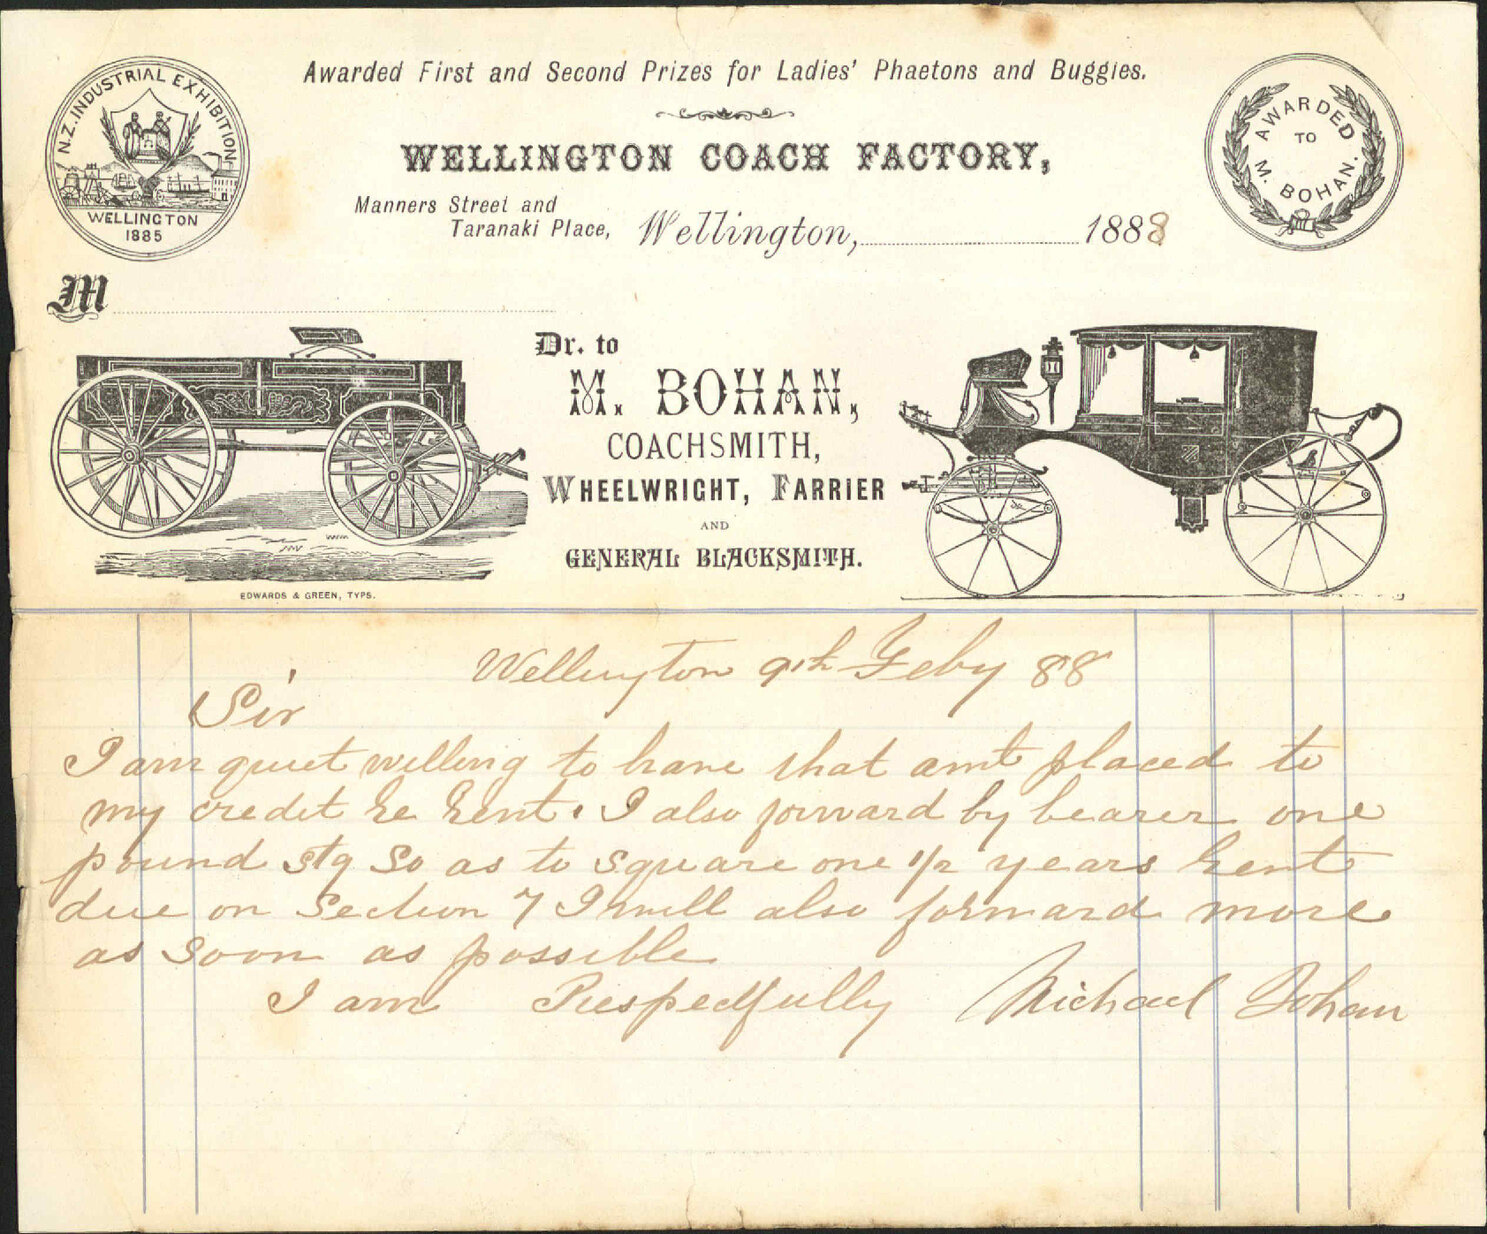 Awarded First and Second Prizes for Ladies' Phaetons and Buggies.
N.Z. INDUSTRIAL EXHIBITION
WELLINGTON
1885
AWARDED
TO
M. BOHAN.
WELLINGTON COACH FACTORY,
Manners Street and
Taranaki Place, Wellington, 1888
M
Dr. to
M. BOHAN,
COACHSMITH,
WHEELWRIGHT, FARRIER
AND
GENERAL BLACKSMITH.
EDWARDS & GREEN, TYPS.
Wellington 9th Feby 88
Sir
I am quiet willing to have that amt placed to
my credit re Rent. I also forward by bearer one
pound stg so as to square one 1/2 years Rent
due on Section 7 I will also forward more
as soon as possible
I am Respectfully Michael Bohan